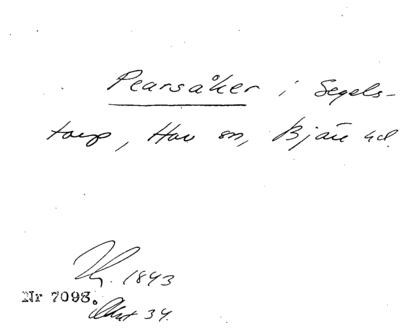 Pearsåker i Segels-
torp, Hov sn, Bjäre hd.
1843
Nr 7098.
Akt 34.